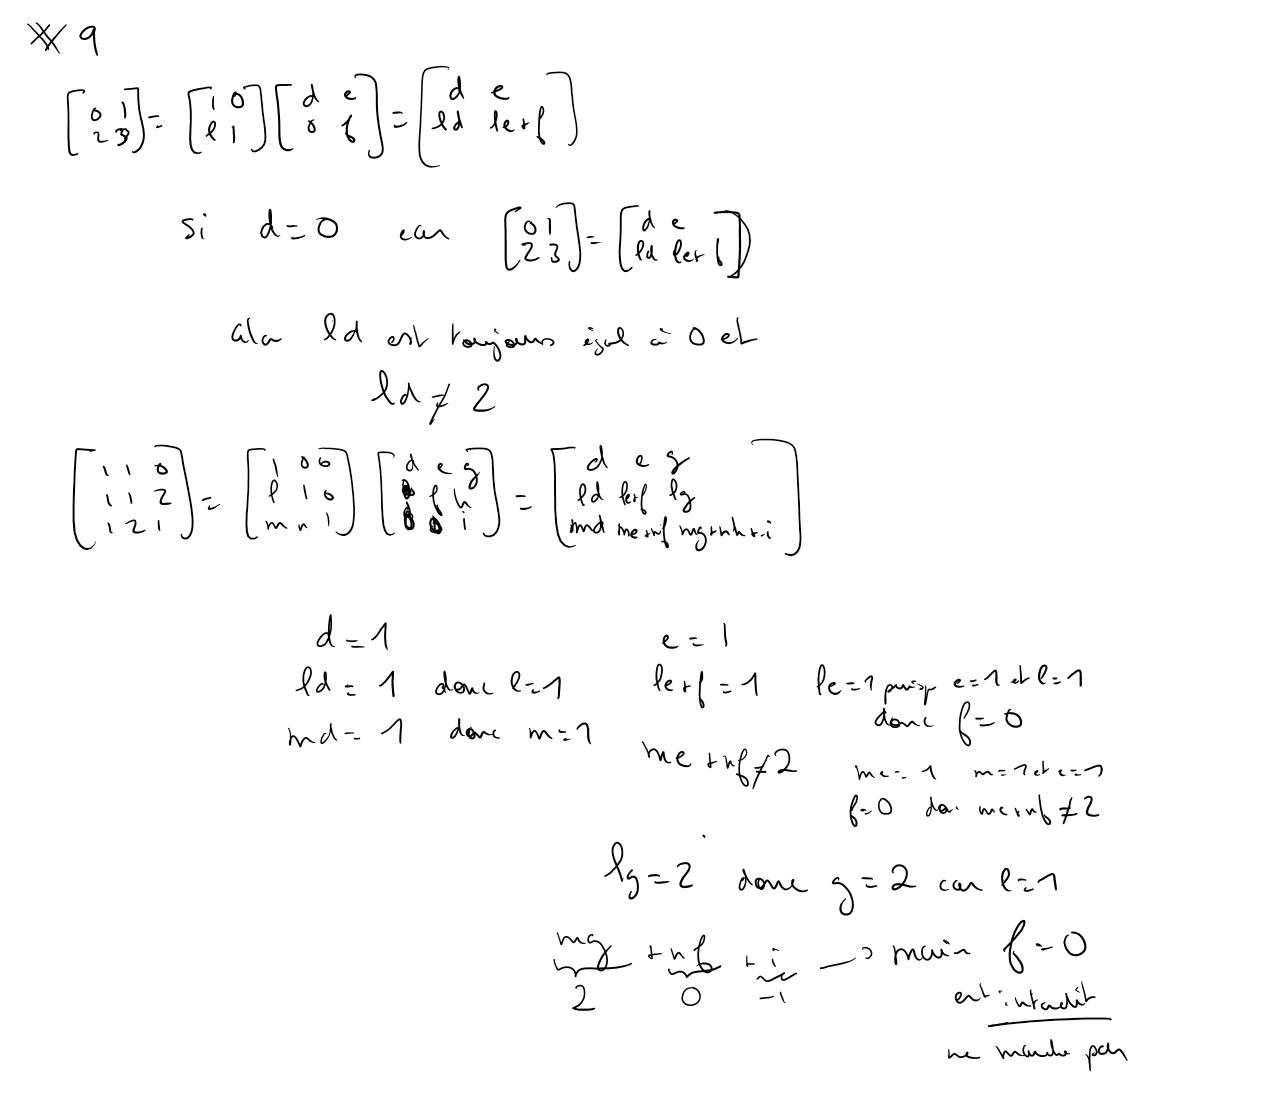 9
[0 1 / 2 3] = [1 0 / l 1] [d e / 0 f] = [d e / ld le+f]
si d=0 car [0 1 / 2 3] = [d e / ld le+f]
alor ld est toujours égal à 0 et
ld ≠ 2
[1 1 0 / 1 1 2 / 1 2 1] = [1 0 0 / l 1 0 / m n 1] [d e g / 0 f h / 0 0 i] = [d e g / ld le+f lg / md me+nf mg+nh+i]
d=1 e=1
ld=1 donc l=1 le+f=1 le=1 puisq e=1 et l=1
donc f=0
md=1 donc m=1 me+nf≠2 me=1 m=1 et e=1
f=0 me+nf≠2
lg=2 donc g=2 car l=1
mg +nf +i → mais f=0
2 0 -1 est interdit
ne marche pas